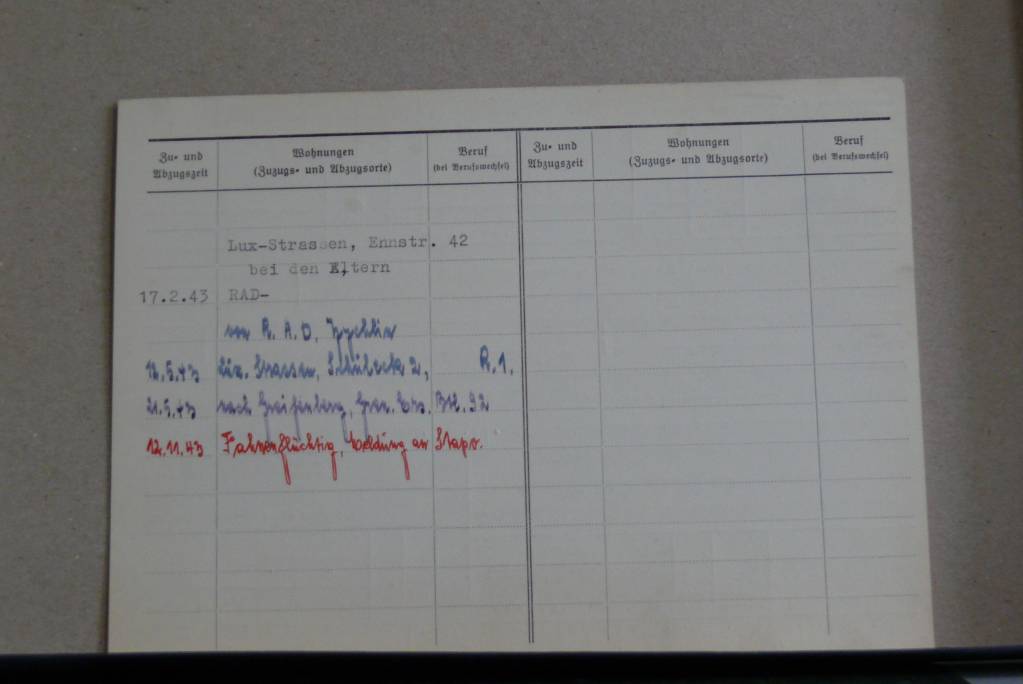 Zu= und Abzugszeit
Wohnungen (Zuzugs= und Abzugsorte)
Beruf (bei Berufswechsel)
Zu= und Abzugszeit
Wohnungen (Zuzugs= und Abzugsorte)
Beruf (bei Berufswechsel)
Lux-Strassen, Ennstr. 42
bei den Eltern
17.2.43 RAD-
von R. A. D.
12.5.43 Lux. Strassen, 2, R.1.
21.5.43 nach Greifenberg, Gren. Ers. Btl. 92
12.11.43 Fahnenflüchtig, Meldung an Stapo.